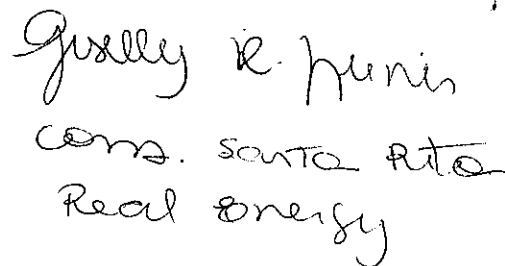 Giselly R.
Cons. Santa Rita
Real Energy